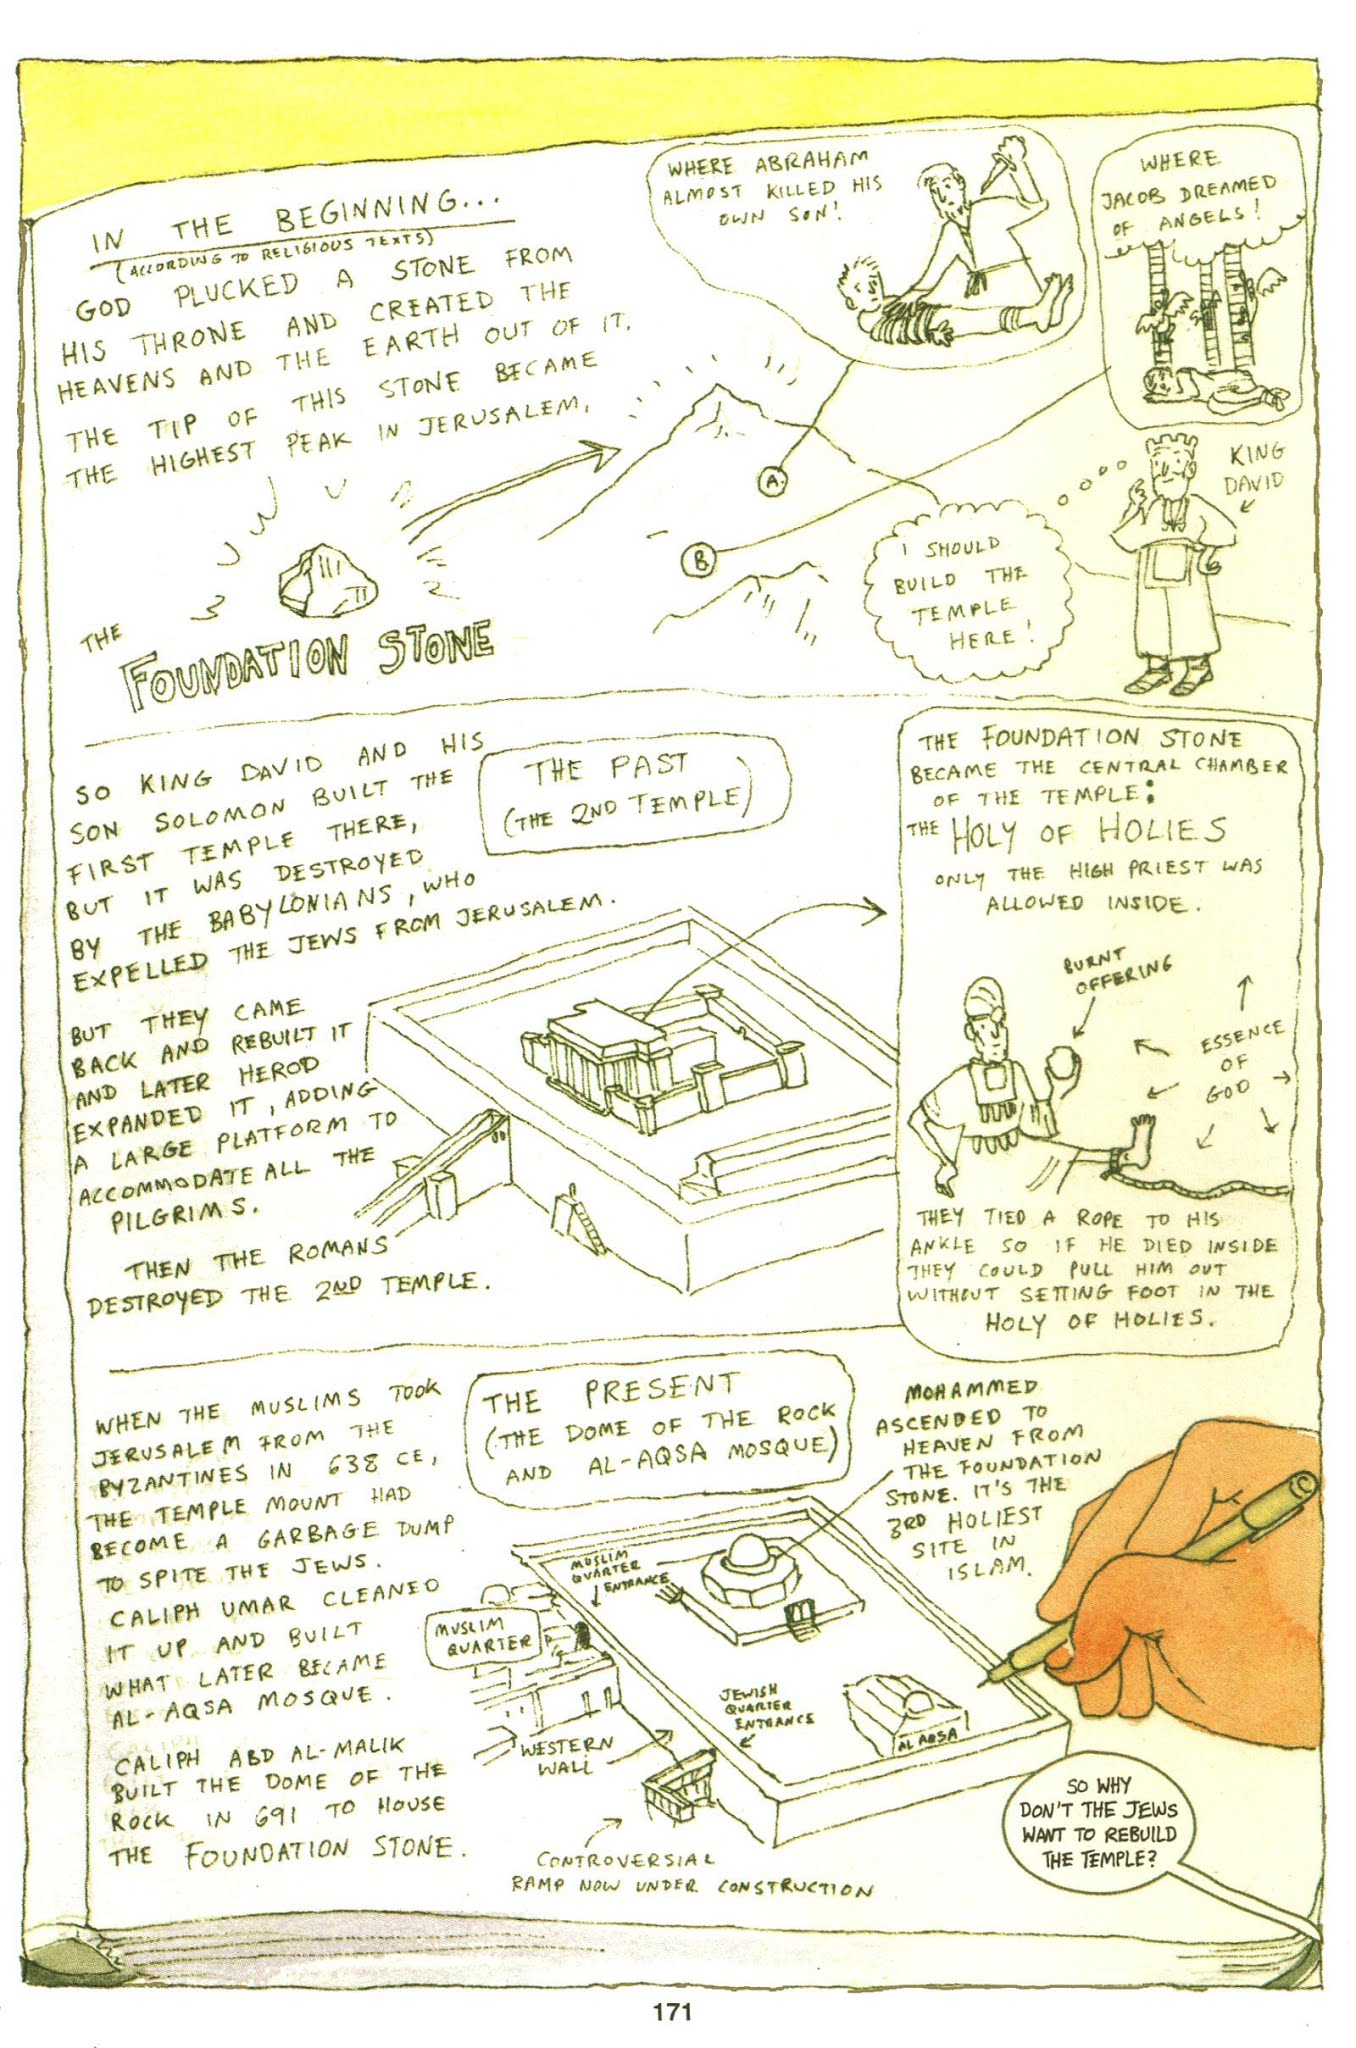 IN THE BEGINNING...
(ACCORDING TO RELIGIOUS TEXTS)
GOD PLUCKED A STONE FROM
HIS THRONE AND CREATED THE
HEAVENS AND THE EARTH OUT OF IT.
THE TIP OF THIS STONE BECAME
THE HIGHEST PEAK IN JERUSALEM.
THE
FOUNDATION STONE
WHERE ABRAHAM
ALMOST KILLED HIS
OWN SON!
WHERE
JACOB DREAMED
OF ANGELS!
A.
B.
KING
DAVID
I SHOULD
BUILD THE
TEMPLE
HERE!
SO KING DAVID AND HIS
SON SOLOMON BUILT THE
FIRST TEMPLE THERE,
BUT IT WAS DESTROYED
BY THE BABYLONIANS, WHO
EXPELLED THE JEWS FROM JERUSALEM.
BUT THEY CAME
BACK AND REBUILT IT
AND LATER HEROD
EXPANDED IT, ADDING
A LARGE PLATFORM TO
ACCOMMODATE ALL THE
PILGRIMS.
THEN THE ROMANS
DESTROYED THE 2ND TEMPLE.
THE PAST
(THE 2ND TEMPLE)
THE FOUNDATION STONE
BECAME THE CENTRAL CHAMBER
OF THE TEMPLE:
THE HOLY OF HOLIES
ONLY THE HIGH PRIEST WAS
ALLOWED INSIDE.
BURNT
OFFERING
ESSENCE
OF
GOD
THEY TIED A ROPE TO HIS
ANKLE SO IF HE DIED INSIDE
THEY COULD PULL HIM OUT
WITHOUT SETTING FOOT IN THE
HOLY OF HOLIES.
WHEN THE MUSLIMS TOOK
JERUSALEM FROM THE
BYZANTINES IN 638 CE,
THE TEMPLE MOUNT HAD
BECOME A GARBAGE DUMP
TO SPITE THE JEWS.
CALIPH UMAR CLEANED
IT UP AND BUILT
WHAT LATER BECAME
AL-AQSA MOSQUE.
CALIPH ABD AL-MALIK
BUILT THE DOME OF THE
ROCK IN 691 TO HOUSE
THE FOUNDATION STONE.
THE PRESENT
(THE DOME OF THE ROCK
AND AL-AQSA MOSQUE)
MOHAMMED
ASCENDED TO
HEAVEN FROM
THE FOUNDATION
STONE. IT'S THE
3RD HOLIEST
SITE IN
ISLAM.
MUSLIM
QUARTER
ENTRANCE
MUSLIM
QUARTER
JEWISH
QUARTER
ENTRANCE
AL AQSA
WESTERN
WALL
CONTROVERSIAL
RAMP NOW UNDER CONSTRUCTION
SO WHY
DON'T THE JEWS
WANT TO REBUILD
THE TEMPLE?
171